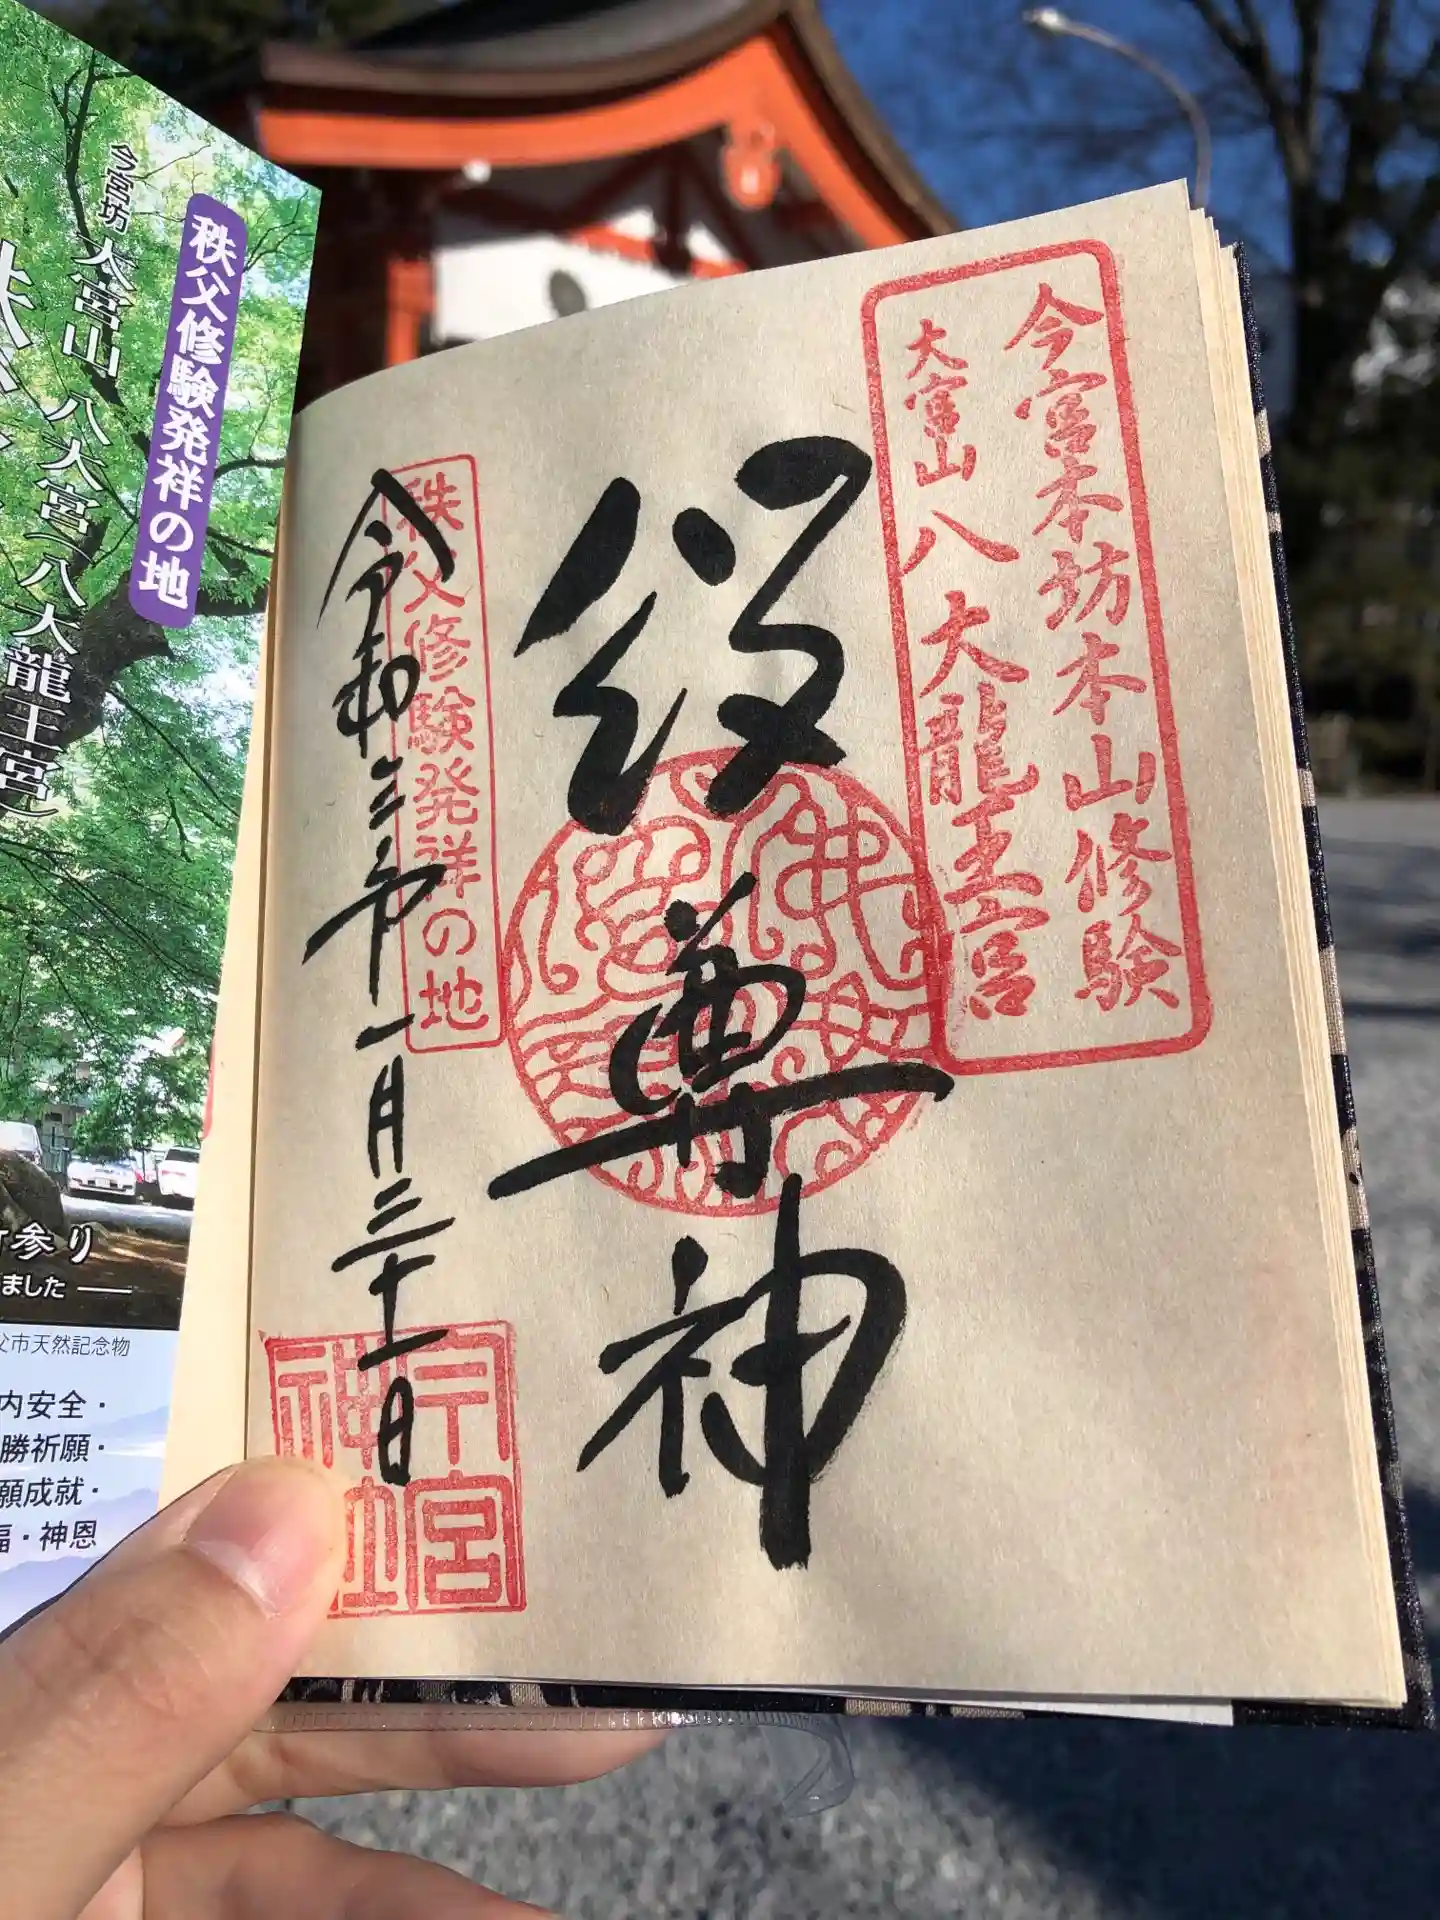 今宮本坊本山修験
大宮山 八大龍王宮
役尊神
秩父修験発祥の地
令和三年一月二十日
今宮
神社
秩父修験発祥の地
今宮坊 大宮山 八大宮(八大龍王宮)
参り
ました
父市天然記念物
内安全・
勝祈願・
願成就・
福・神恩